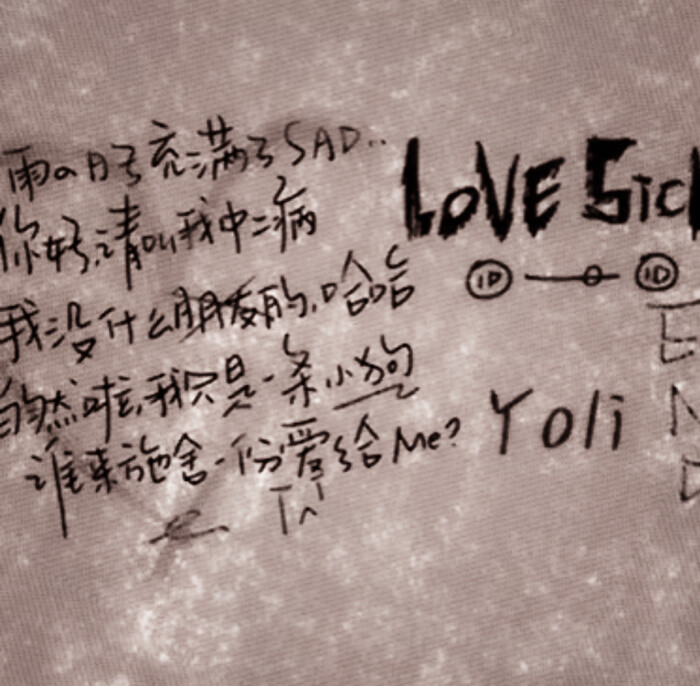 雨の日子充满了SAD..
你好,请叫我中二病
我没什么朋友的,哈哈
当然啦,我只是一条小狗
谁来施舍一份爱给Me?
LOVE Sick
ID ID
Yoli
END